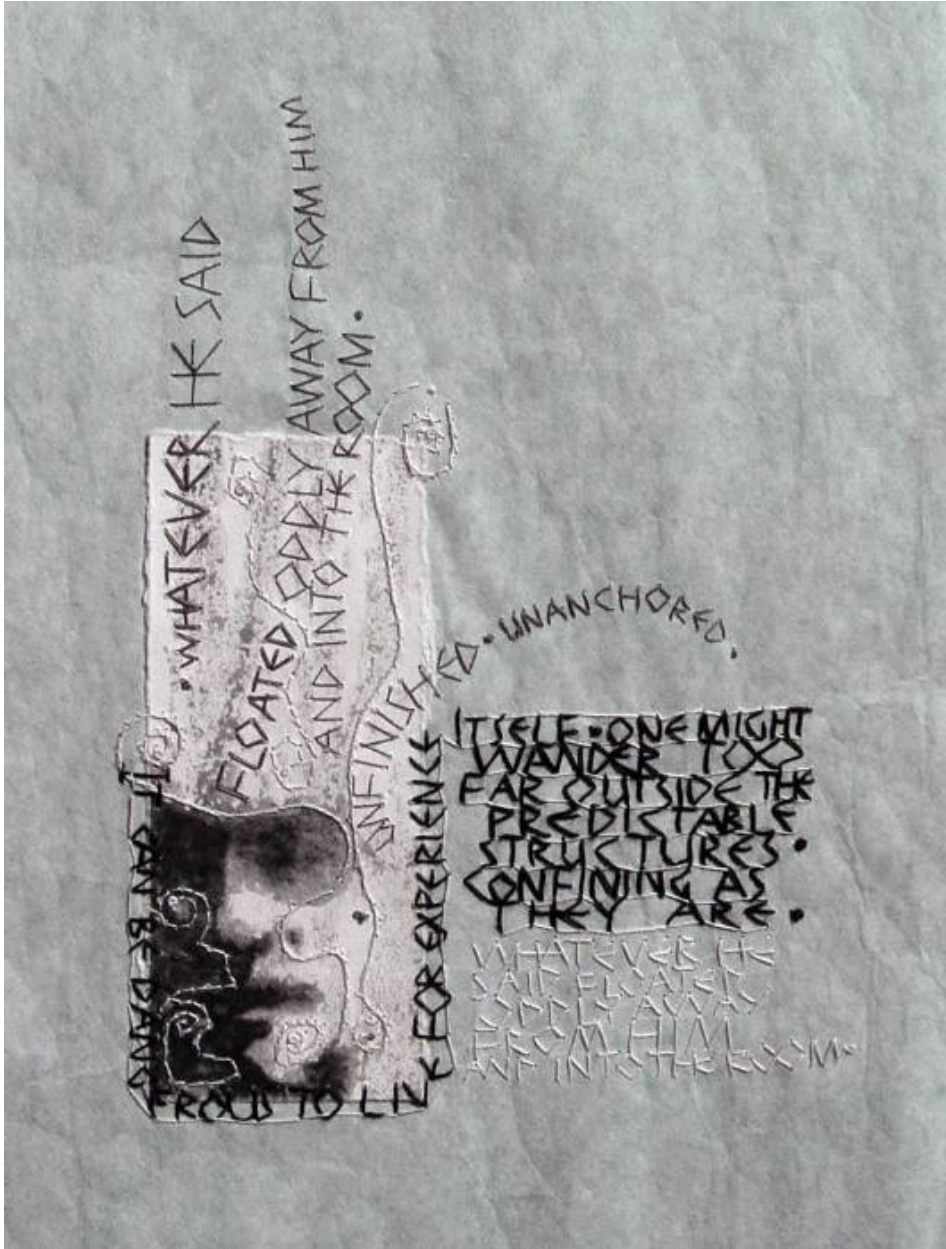 ·WHATEVER HE SAID
FLOATED ODDLY AWAY FROM HIM
AND INTO THE ROOM·
UNFINISHED·UNANCHORED·
IT CAN BE DANG
EROUS TO LIV
E FOR EXPERIENCE
ITSELF·ONE MIGHT
WANDER TOO
FAR OUTSIDE THE
PREDICTABLE
STRUCTURES·
CONFINING AS
THEY ARE·
WHATEVER HE
SAID FLOATED
ODDLY AWAY
FROM HIM
AND INTO THE ROOM·